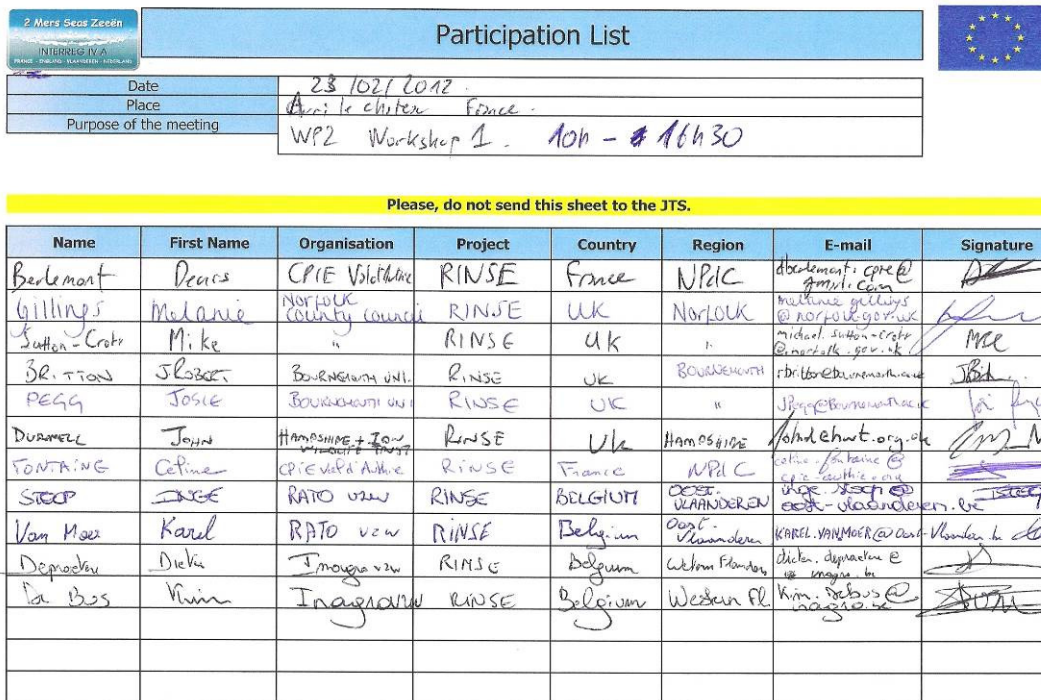 2 Mers Seas Zeeën
INTERREG IV A
FRANCE - ENGLAND - VLAANDEREN - NEDERLAND
Participation List
Date 23/02/2012.
Place le château France.
Purpose of the meeting WP2 Workshop 1. 10h - 16h30
Please, do not send this sheet to the JTS.
Name First Name Organisation Project Country Region E-mail Signature
Berlemont Denis CPIE RINSE France NPdC dberlemont.cpie@gmail.com
Gillings Melanie Norfolk County Council RINSE UK Norfolk melanie.gillings@norfolk.gov.uk
Sutton-Croft Mike " RINSE UK " michael.sutton-croft@norfolk.gov.uk
BRITTON J ROBERT BOURNEMOUTH UNI. RINSE UK BOURNEMOUTH rbritton@bournemouth.ac.uk
PEGG JOSIE BOURNEMOUTH UNI RINSE UK " JPegg@Bournemouth.ac.uk
DURNELL JOHN HAMPSHIRE + IOW WILDLIFE TRUST RINSE UK HAMPSHIRE johnd@hwt.org.uk
FONTAINE Céline CPIE Val d'Authie RINSE France NPdC celine.fontaine@cpie-authie.org
STOOP INGE RATO vzw RINSE BELGIUM OOST-VLAANDEREN inge.stoop@oost-vlaanderen.be
Van Moer Karel RATO vzw RINSE Belgium Oost-Vlaanderen KAREL.VANMOER@Oost-Vlaanderen.be
Depraetere Dieter Inagro vzw RINSE Belgium Western Flanders dieter.depraetere@inagro.be
De Bus Kim Inagro vzw RINSE Belgium Western Fl Kim.debus@inagro.be